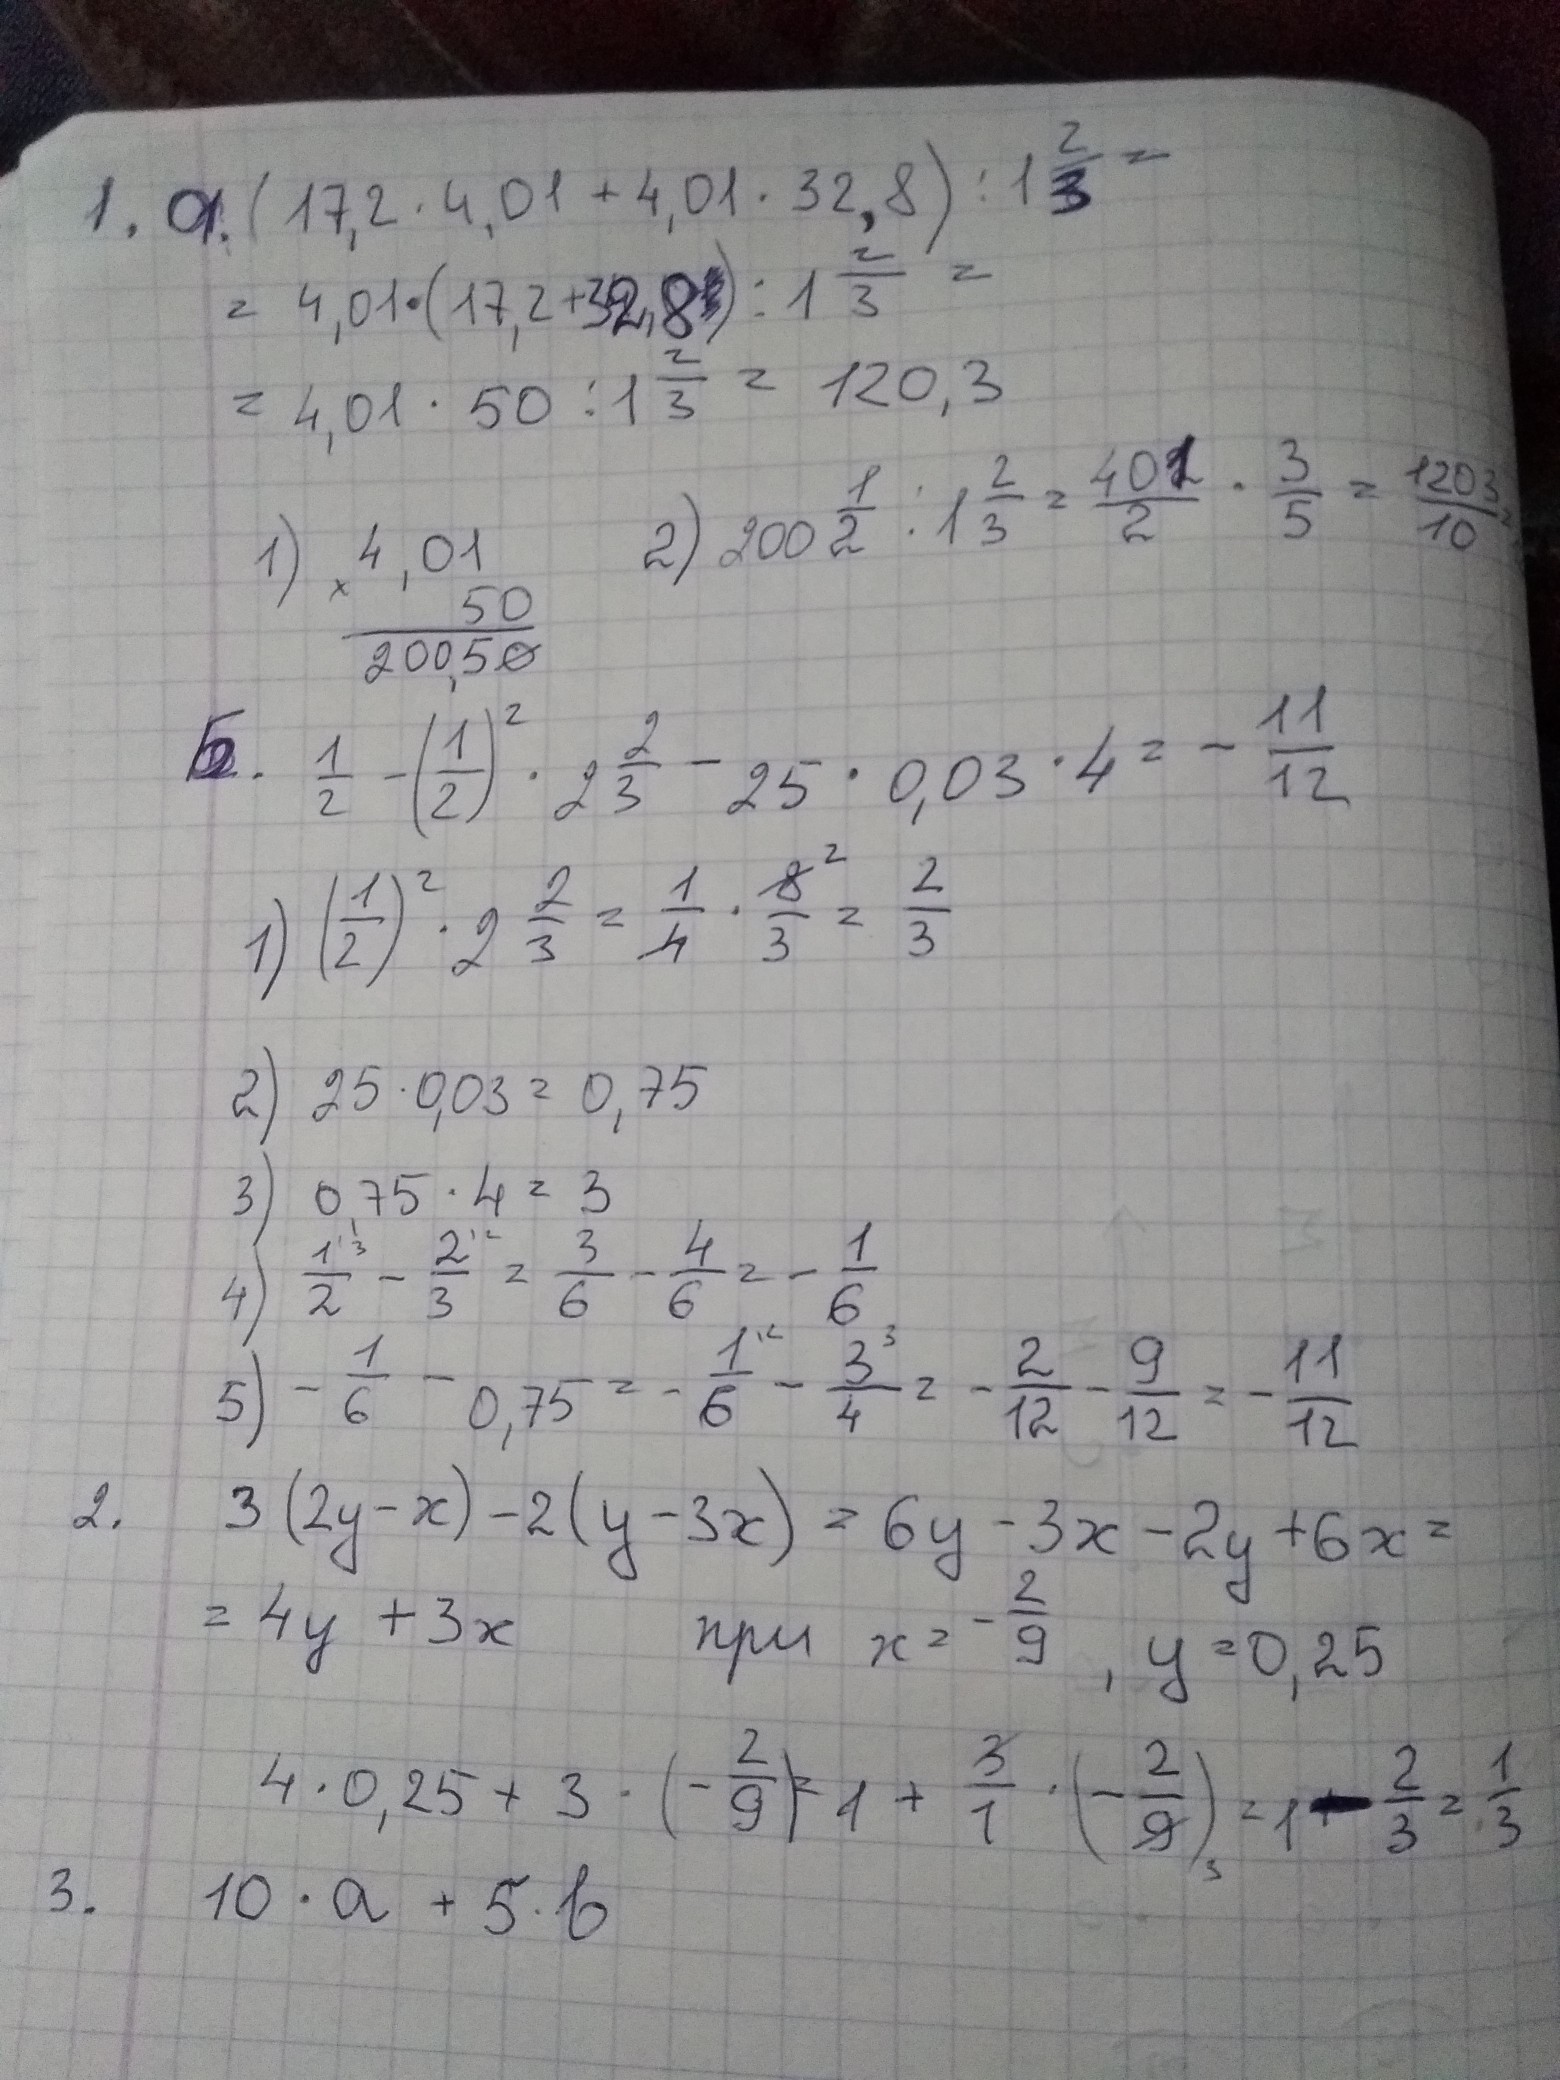 1. а. (17,2 · 4,01 + 4,01 · 32,8) : 1 2/3 =
= 4,01 · (17,2 + 32,8) : 1 2/3 =
= 4,01 · 50 : 1 2/3 = 120,3
1) × 4,01
50
200,50
2) 200 1/2 : 1 2/3 = 401/2 · 3/5 = 1203/10 =
Б. 1/2 - (1/2)² · 2 2/3 - 25 · 0,03 · 4 = - 11/12
1) (1/2)² · 2 2/3 = 1/4 · 8²/3 = 2/3
2) 25 · 0,03 = 0,75
3) 0,75 · 4 = 3
4) 1/2 ·3 - 2/3 ·2 = 3/6 - 4/6 = - 1/6
5) - 1/6 - 0,75 = - 1/6 ·2 - 3/4 3 = - 2/12 - 9/12 = - 11/12
2. 3(2y - x) - 2(y - 3x) = 6y - 3x - 2y + 6x =
= 4y + 3x при x = - 2/9, y = 0,25
4 · 0,25 + 3 · (- 2/9) = 1 + 3/1 · (- 2/9) 3 = 1 - 2/3 = 1/3
3. 10 · a + 5 · b